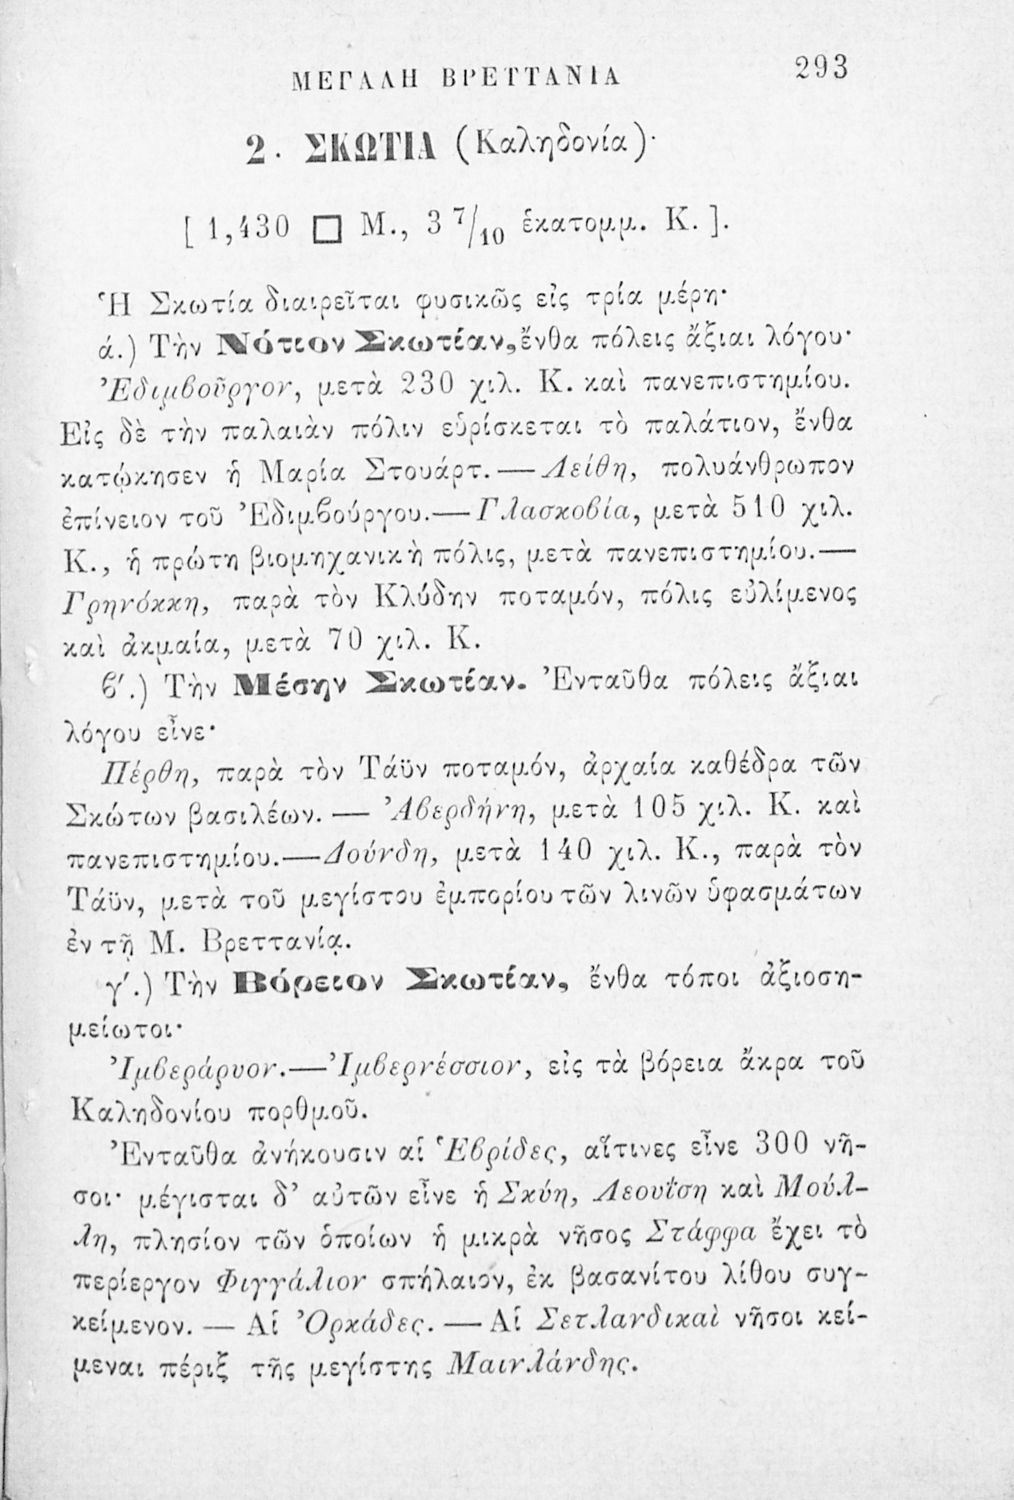 ΜΕΓΑΛΗ ΒΡΕΤΤΑΝΙΑ 293
2. ΣΚΩΤΙΑ (Καληδονία)·
[ 1,430 □ Μ., 3 7/10 ἑκατομμ. Κ. ].
Ἡ Σκωτία διαιρεῖται φυσικῶς εἰς τρία μέρη·
ά.) Τὴν Νότιον Σκωτίαν, ἔνθα πόλεις ἄξιαι λόγου·
Ἐδιμβοῦργον, μετὰ 230 χιλ. Κ. καὶ πανεπιστημίου.
Εἰς δὲ τὴν παλαιὰν πόλιν εὑρίσκεται τὸ παλάτιον, ἔνθα
κατῴκησεν ἡ Μαρία Στουάρτ.— Λείθη, πολυάνθρωπον
ἐπίνειον τοῦ Ἐδιμϐούργου.— Γλασκοϐία, μετὰ 510 χιλ.
Κ., ἡ πρώτη βιομηχανικὴ πόλις, μετὰ πανεπιστημίου.—
Γρηνόκκη, παρὰ τὸν Κλύδην ποταμόν, πόλις εὐλίμενος
καὶ ἀκμαία, μετὰ 70 χιλ. Κ.
ϐ΄.) Τὴν Μέσην Σκωτίαν. Ἐνταῦθα πόλεις ἄξιαι
λόγου εἶνε·
Πέρθη, παρὰ τὸν Τάϋν ποταμόν, ἀρχαία καθέδρα τῶν
Σκώτων βασιλέων. — Ἀϐερδήνη, μετὰ 105 χιλ. Κ. καὶ
πανεπιστημίου.— Δούνδη, μετὰ 140 χιλ. Κ., παρὰ τὸν
Τάϋν, μετὰ τοῦ μεγίστου ἐμπορίου τῶν λινῶν ὑφασμάτων
ἐν τῇ Μ. Βρεττανίᾳ.
γ΄.) Τὴν Βόρειον Σκωτίαν, ἔνθα τόποι ἀξιοση-
μείωτοι·
Ἰμϐεράρυον.— Ἰμϐερνέσσιον, εἰς τὰ βόρεια ἄκρα τοῦ
Καληδονίου πορθμοῦ.
Ἐνταῦθα ἀνήκουσιν αἱ Ἑϐρίδες, αἵτινες εἶνε 300 νῆ-
σοι· μέγισται δ᾽ αὐτῶν εἶνε ἡ Σκύη, Λεουΐση καὶ Μούλ-
λη, πλησίον τῶν ὁποίων ἡ μικρὰ νῆσος Στάφφα ἔχει τὸ
περίεργον Φιγγάλιον σπήλαιον, ἐκ βασανίτου λίθου συγ-
κείμενον. — Αἱ Ὀρκάδες. — Αἱ Σετλανδικαὶ νῆσοι κεί-
μεναι πέριξ τῆς μεγίστης Μαινλάνδης.